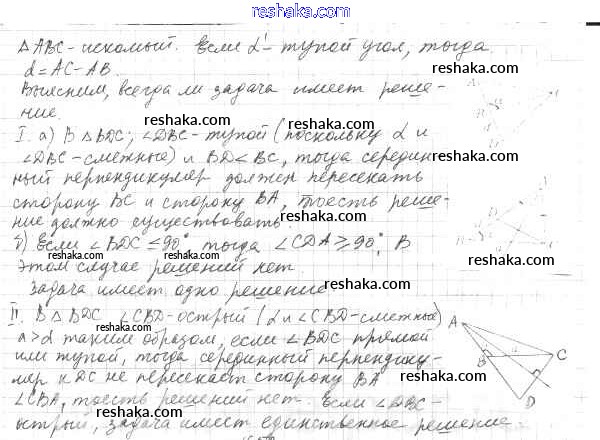 reshaka.com
△ABC - искомый. Если α' - тупой угол, тогда
d = AC - AB. reshaka.com
reshaka.com
Выясним, всегда ли задача имеет реше-
ние. reshaka.com
I. а) В △BDC; ∠DBC - тупой (поскольку α и
∠DBC - смежные) и BD < BC, тогда середин-
ный перпендикуляр должен пересекать
сторону BC и сторону BA, то есть реше-
ние должно существовать. reshaka.com
б) Если ∠BDC ≤ 90°, тогда ∠CDA ≥ 90°, В
этом случае решений нет.
reshaka.com
Задача имеет одно решение
II. В △BDC ∠CBD - острый (α и ∠CBD - смежные)
a > d таким образом, если ∠BDC прямой
или тупой, тогда серединный перпендику-
ляр к DC не пересекает сторону BA
∠CBA, то есть решений нет. Если ∠DBC -
острый, задача имеет единственное решение
reshaka.com
A
B
C
D